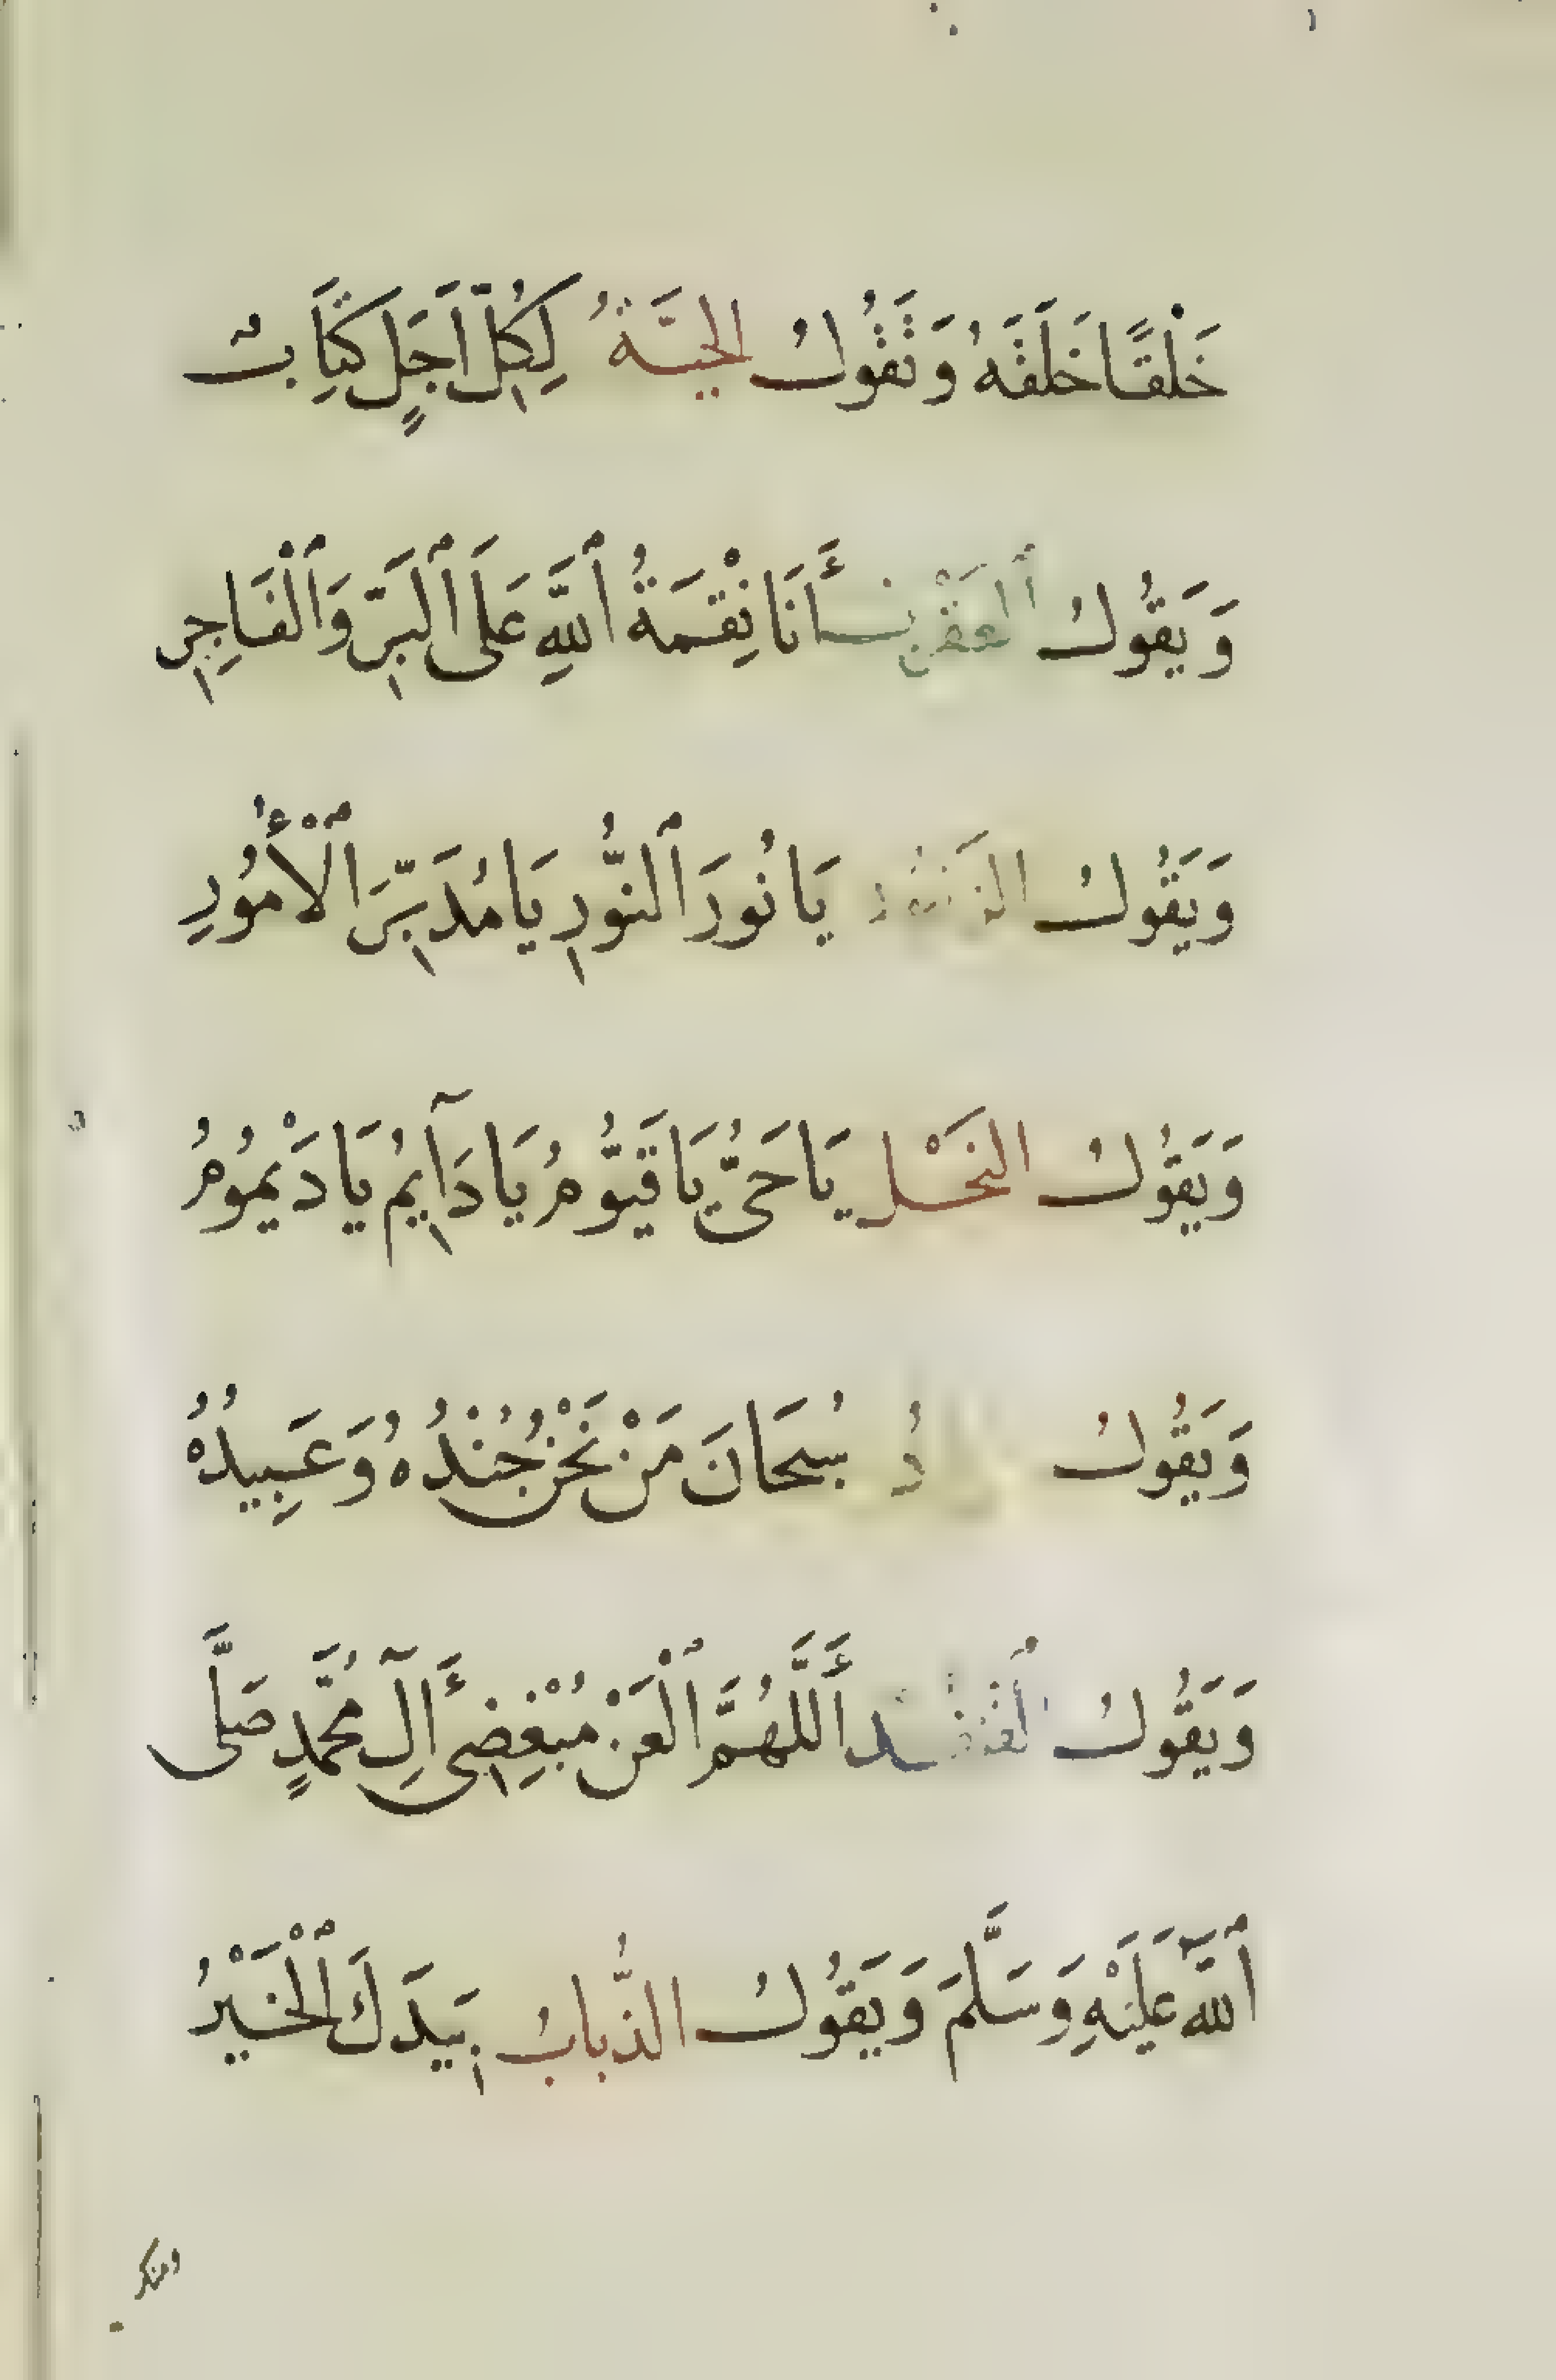 خَلْقًا خَلَقَهُ وَتَقُولُ الحَيَّةُ لِكُلِّ أَجَلٍ كِتَابٌ
وَيَقُولُ ٱلعَقْرَبُ أَنَا نِقْمَةُ ٱللَّهِ عَلَى ٱلْبَرِّ وَٱلْفَاجِرِ
وَيَقُولُ الزَنبُورُ يَا نُورَ ٱلنُّورِ يَا مُدَبِّرَ ٱلْأُمُورِ
وَيَقُولُ النَحْل يَا حَىُّ يَا قَيُّومُ يَا دَآيِمُ يَا دَيْمُومُ
وَيَقُولُ سُبحَانَ مَنْ نَحْنُ جُنْدُهُ وَعَبِيدُهُ
وَيَقُولُ ٱلقُنْفُد أَللَّهُمَّ ٱلْعَنْ مُبْغِضِى أَلِ مُحَمَّدٍ صَلَّى
ٱللَّهُ عَلَيْهِ وَسَلَّمَ وَيَقُولُ الذُّبابُ بِيَدِكَ ٱلْخَيْرُ